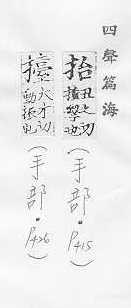 四聲篇海
抬 丑之切
也
(手部.P415)
擡 大才切
動振也
(手部.P426)